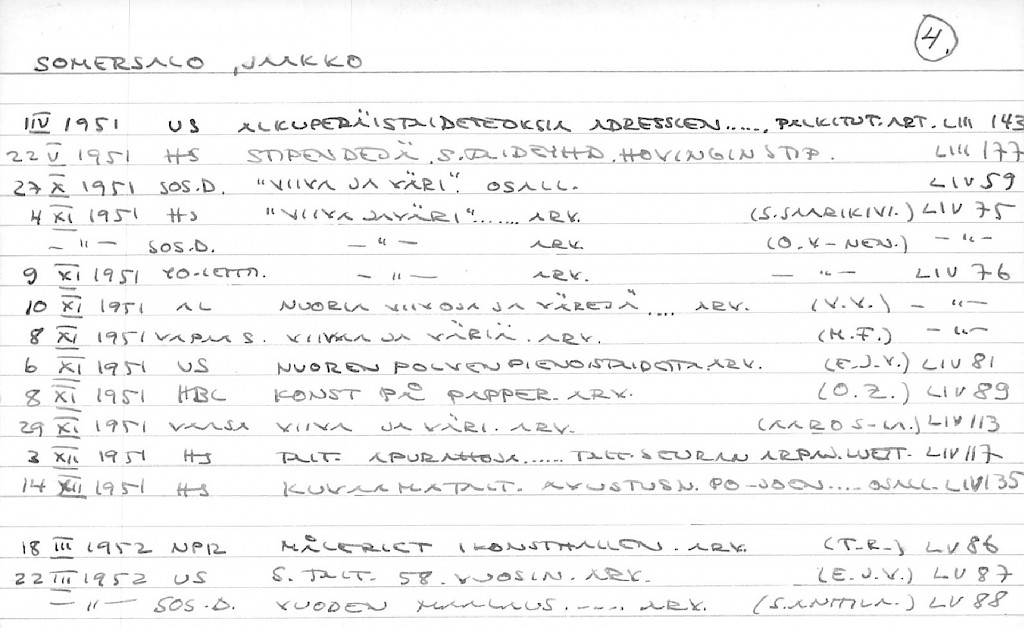 4.
SOMERSALO, JAAKKO
1 IV 1951 US ALKUPERÄISTAIDETEOKSIA ADRESSIEN....., PALKITUT. ART. LIII 143
22 V 1951 HS STIPENDEJÄ. S. TAIDEYHD. HOVINGIN STIP. LIII 177
27 X 1951 SOS.D. "VIIVA JA VÄRI". OSALL. LIV 59
4 XI 1951 HS "VIIVA JA VÄRI"...... ARV. (S. SAARIKIVI.) LIV 75
— " — SOS.D. — " — ARV. (O. V-NEN.) — " —
9 XI 1951 YO-LEHTI. — " — ARV. — " — LIV 76
10 XI 1951 AL NUORIA VIIVOJA JA VÄREJÄ.... ARV. (V.V.) — " —
8 XI 1951 VAPAA S. VIIVAA JA VÄRIÄ. ARV. (M.F.) — " —
6 XI 1951 US NUOREN POLVEN PIENOISTAIDETTA ARV. (E.J.V.) LIV 81
8 XI 1951 HBL KONST PÅ PAPPER. ARV. (O.Z.) LIV 89
29 XI 1951 VAASA VIIVA JA VÄRI. ARV. (AARO S-LA.) LIV 113
3 XII 1951 HS TAIT. APURAHOJA...... TAIT. SEURAN ARPAJ. VOITT. LIV 117
14 XII 1951 HS KUVAAMATAIT. AVUSTUSN. PO-JOEN.... OSALL. LIV 135
18 III 1952 NPR MÅLERIET I KONSTHALLEN. ARV. (T.R.) LV 86
22 III 1952 US S. TAIT. 58. VUOSIN. ARV. (E.J.V.) LV 87
— " — SOS.D. VUODEN MAALAUS..... ARV. (S. ANTTILA.) LV 88